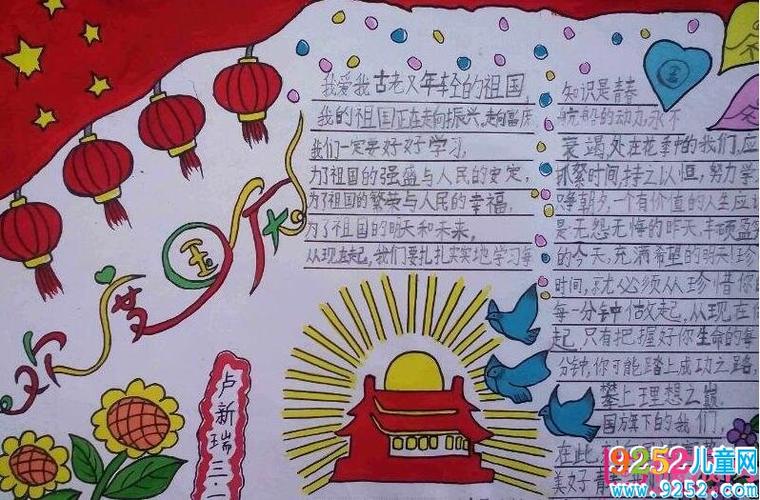 欢度国庆
我爱我古老又年轻的祖国,
我的祖国正在走向振兴,走向富庶
我们一定要好好学习,
为了祖国的强盛与人民的安定,
为了祖国的繁荣与人民的幸福,
为了祖国的明天和未来,
从现在起,我们要扎扎实实地学习每
知识是青春
般的动力,永不
衰竭处在花季中的我们,应
抓紧时间,持之以恒,努力学
朝夕,一个有价值的人生应
是无怨无悔的昨天,丰硕盈
的今天,充满希望的明天!珍
时间,就必须从珍惜你
每一分钟做起,从现在
起,只有把握好你生命的每
分钟,你可能踏上成功之路,
攀上理想之巅.
国旗下的我们,
在此,
美好青春
卢新瑞 三.一
9252儿童网
www.9252.com